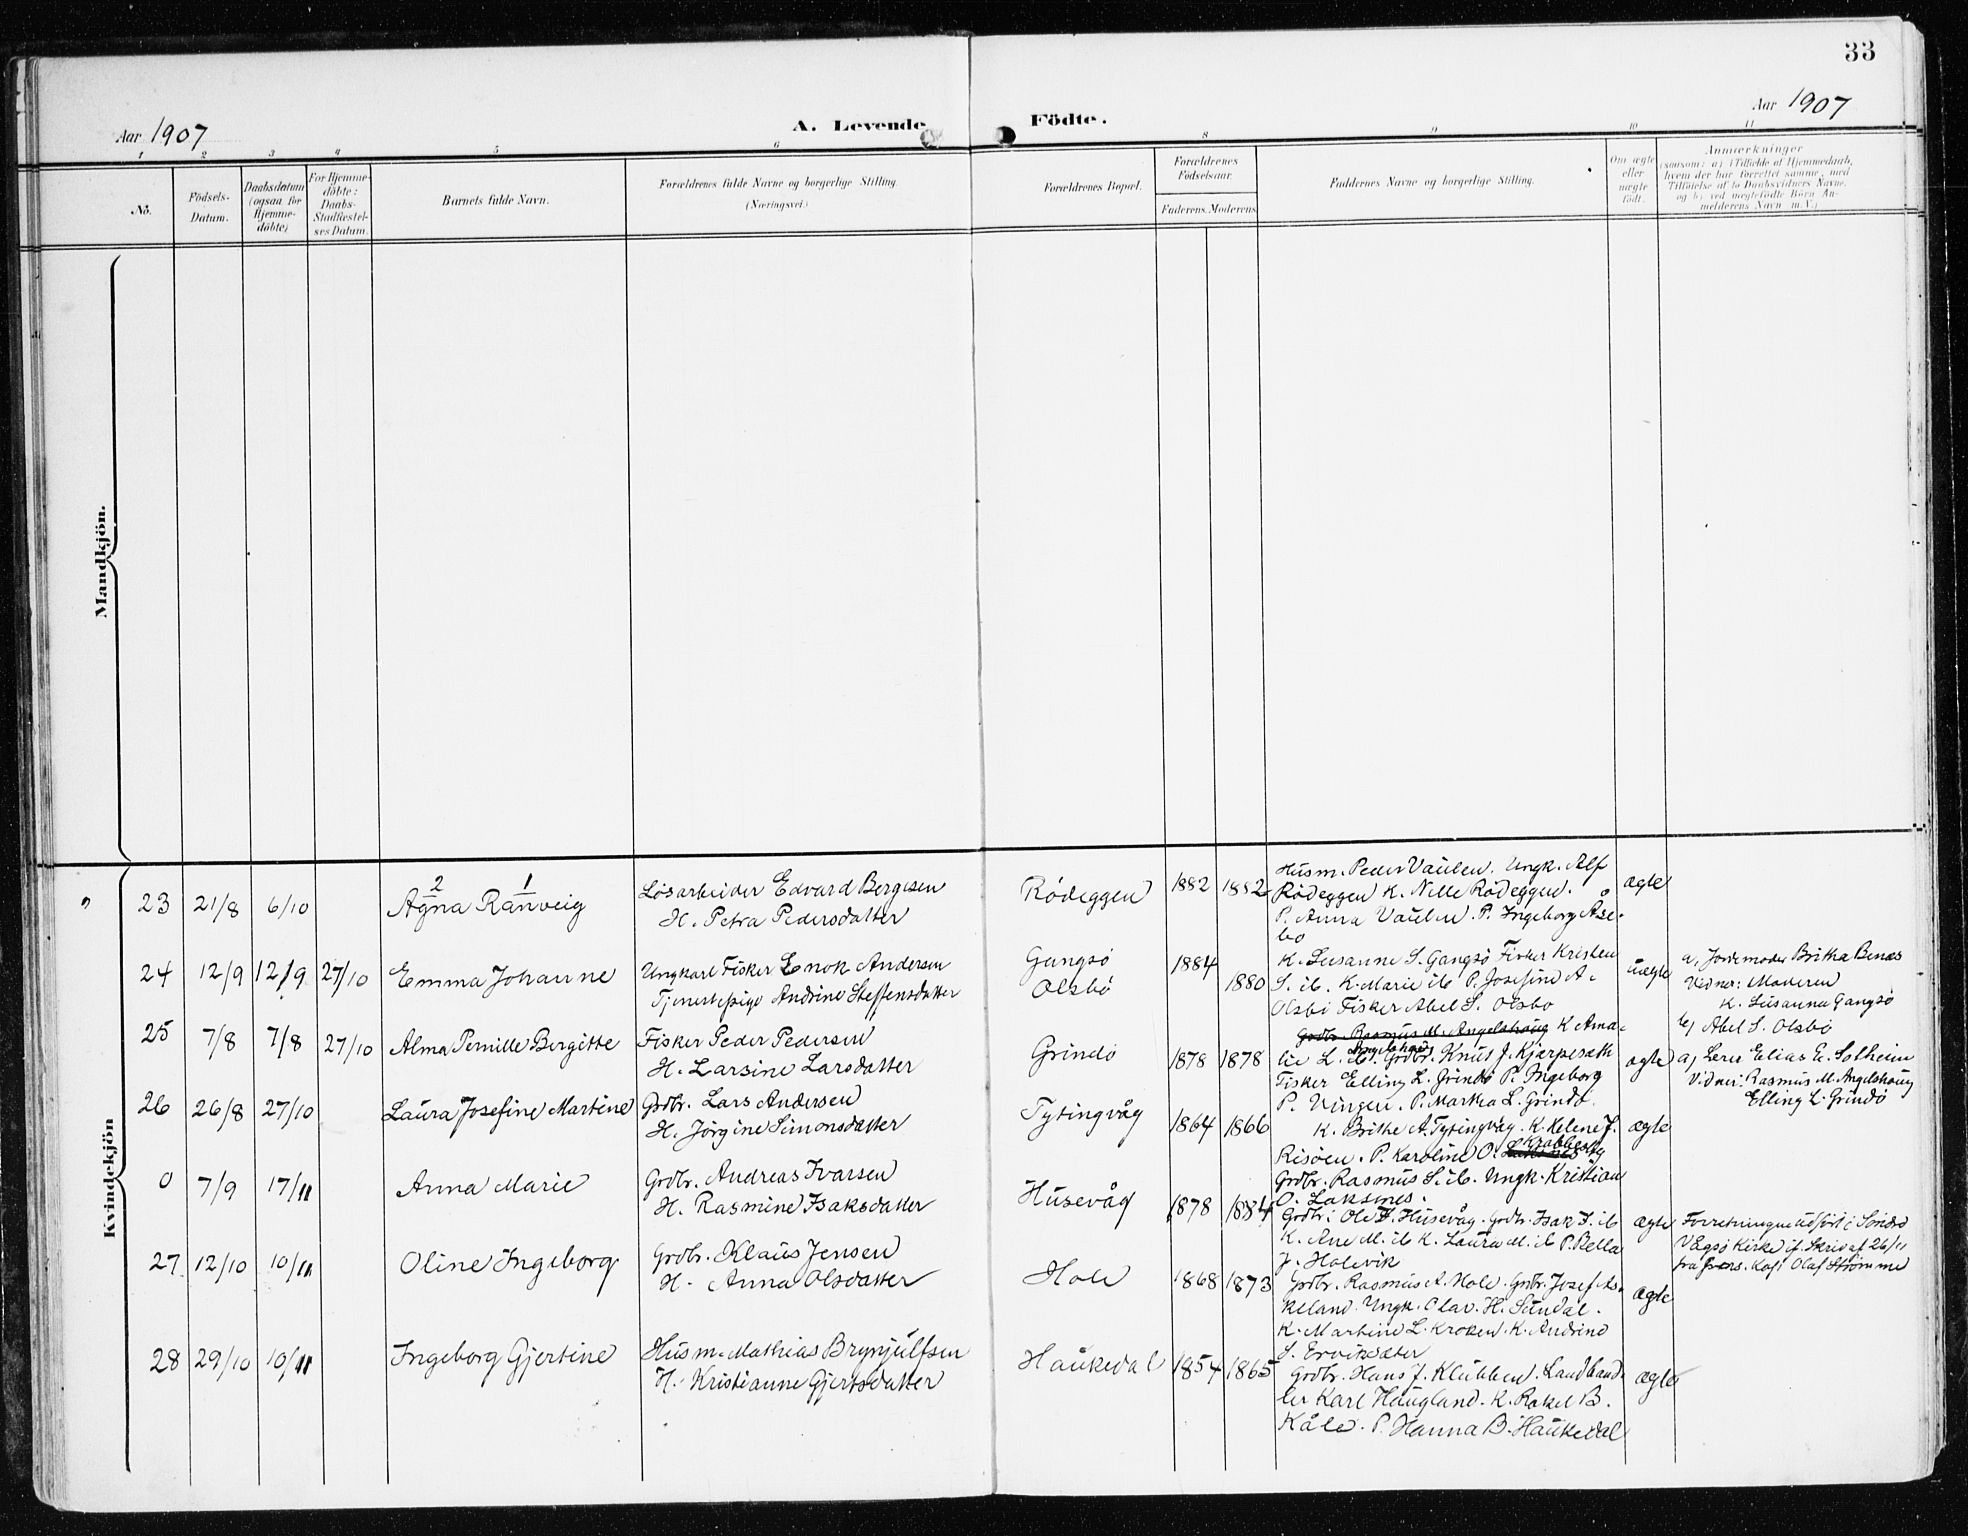 33
Aar 1907
A. Levende
Födte.
Aar 1907
1 2 3 4 5 6 8 9 10 11
No.
Födsels-
Datum.
Daabsdatum
(ogsaa for
Hjemme-
döbte)
For Hjemme-
döbte:
Daabs-
Stadfæstel-
ses Datum.
Barnets fulde Navn.
Forældrenes fulde Navne og borgerlige Stilling.
(Næringsvei.)
Forældrenes Bopæl.
Forældrenes
Födselsaar.
Faderens. Moderens.
Faddernes Navne og borgerlige Stilling.
Om ægte
eller
uægte
födt.
Anmærkninger
(saasom: a) i Tilfælde af Hjemmedaab,
hvem der har forrettet samme, med
Tilföielse af to Daabsvidners Navne.
og b) ved uægtefödte Börn An-
melderens Navn m.V.)
Mandkjön.
Kvindekjön
23 21/8 6/10
2 1
Agna Ranveig
Løsarbeider Edvard Bergesen
H. Petra Pedersdatter
Rödeggen
1882 1882
Husm. Peder Vaulen. Ungk. Alf
Rödeggen K. Nille Rödeggen.
P. Anna Vaulen. P. Ingeborg Åse-
bo
ægte
24 12/9 12/9 27/10
Emma Johanne
Ungkarl Fisker Enok Andersen
Tjenestepige Andrine Steffensdatter
Gangsö
Olsbö
1884
1880
K. Susanne S. Gangsö Fisker Kristen
S. ib. K. Marie ib P. Josefine A.
Olsbö Fisker Abel S. Olsbö
uægte
a, Jordemoder Britha Benæs
Vidner: Moderen
K. Susanna Gangsö
b, Abel S. Olsbö
25 7/8 7/8 27/10
Alma Pernille Bergitte
Fisker Peder Pedersen
H. Larsine Larsdatter
Grindö
1878 1878
Grdbr. Rasmus M. Angelshaug K Ama-
lie L. Angelshaug Grdbr. Knus J. Kjærpesæth
Fisker Elling L. Grindö P. Ingeborg
P. Vingen. P. Martha L. Grindö.
ægte
a, Lerer Elias E. Solheim
Vidner: Rasmus M. Angelshaug
Elling L. Grindö
26 26/8 27/10
Laura Josefine Martine
Grdbr. Lars Andersen
H. Jörgine Simonsdatter
Tytingvåg
1864 1866
K. Brithe A. Tytingvåg. K. Helene J.
Risöen. P. Karoline O. Krabbestig
Grdbr. Rasmus S. ib. Ungk. Kristian
O. Laksnes.
ægte
0 7/9 17/11
Anna Marie
Grdbr. Andreas Ivarsen
H. Rasmine Isaksdatter
Husevåg
1878 1884
Grdbr. Ole I. Husevåg. Grdbr. Isak I. ib
K. Ane M. ib K. Laura M. ib P. Bella
J. Holevik
ægte
Forretningen udført i Söndre
Vågsö Kirke if. Skriv af 26/11
fra pers. Kap. Olaf Strömme
27 12/10 10/11
Oline Ingeborg
Grdbr. Klaus Jensen
H. Anna Olsdatter
Hole
1868 1873
Grdbr. Rasmus A. Hole. Grdbr. Josef As-
keland. Ungk. Olav. H. Sundal.
K. Martine L. Kroken. K. Andrine
S. Erviksæter
ægte
28 29/10 10/11
Ingeborg Gjertine
Husm. Mathias Brynjulfsen
H. Kristianne Gjertsdatter
Haukedal
1854 1865
Grdbr. Hans J. Klubben. Landhand-
ler Karl Haugland. K. Rakel B.
Kåle. P. Hanna B. Haukedal
ægte